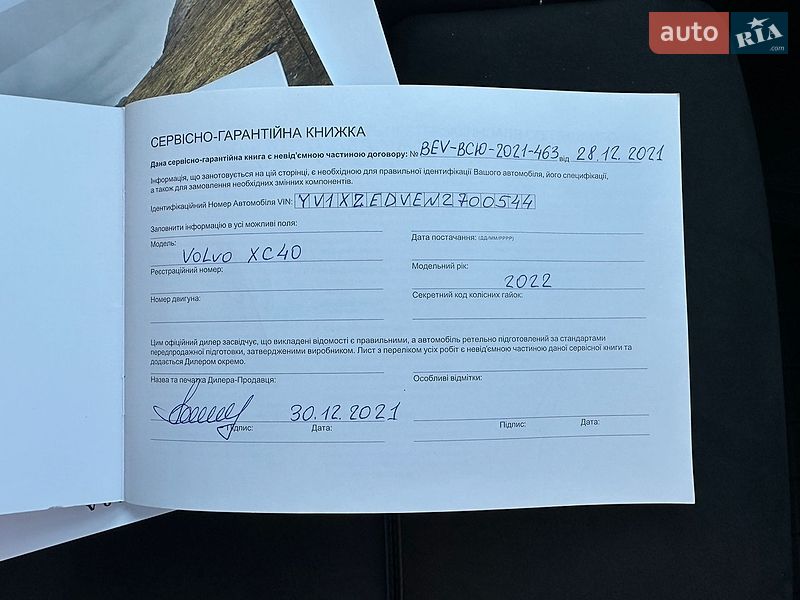 auto RIA .com
СЕРВІСНО-ГАРАНТІЙНА КНИЖКА
Дана сервісно-гарантійна книга є невід'ємною частиною договору: № BEV-ВСЮ-2021-463 від 28.12.2021
Інформація, що занотовується на цій сторінці, є необхідною для правильної ідентифікації Вашого автомобіля, його специфікації,
а також для замовлення необхідних змінних компонентів.
Ідентифікаційний Номер Автомобіля VIN: YV1XZEDVEN2700544
Заповнити інформацію в усі можливі поля:
Модель: Volvo XC40
Реєстраційний номер:
Номер двигуна:
Дата постачання: (ДД/ММ/РРРР)
Модельний рік: 2022
Секретний код колісних гайок:
Цим офіційний дилер засвідчує, що викладені відомості є правильними, а автомобіль ретельно підготовлений за стандартами
передпродажної підготовки, затвердженими виробником. Лист з переліком усіх робіт є невід'ємною частиною даної сервісної книги та
додається Дилером окремо.
Назва та печатка Дилера-Продавця:
30.12.2021
Підпис: Дата:
Особливі відмітки:
Підпис: Дата: